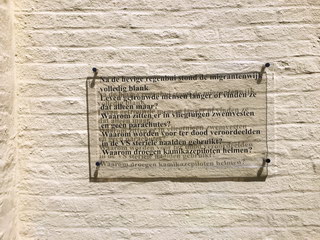 Na de hevige regenbui stond de migrantenwijk
volledig blank.
Leven getrouwde mensen langer of vinden ze
dat alleen maar?
Waarom zitten er in vliegtuigen zwemvesten
en geen parachutes?
Waarom worden voor ter dood veroordeelden
in de VS steriele naalden gebruikt?
Waarom droegen kamikazepiloten helmen?